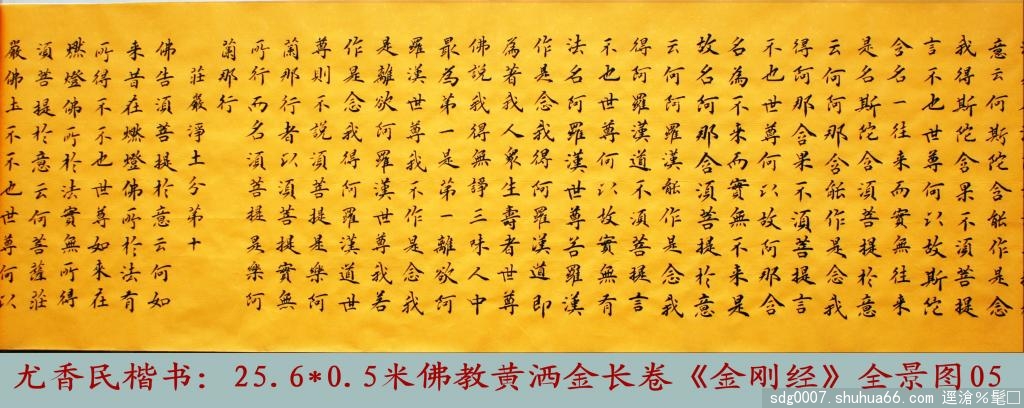 意云何斯陀含能作是念
我得斯陀含果不須菩提
言不也世尊何以故斯陀
含名一往来而實無往来
是名斯陀含須菩提於意
云何阿那含能作是念我
得阿那含果不須菩提言
不也世尊何以故阿那含
名為不来而實無不来是
故名阿那含須菩提於意
云何阿羅漢能作是念我
得阿羅漢道不須菩提言
不也世尊何以故實無有
法名阿羅漢世尊若羅漢
作是念我得阿羅漢道即
為著我人衆生壽者世尊
佛說我得無諍三昧人中
最為第一是第一離欲阿
羅漢世尊我不作是念我
是離欲阿羅漢世尊我若
作是念我得阿羅漢道世
尊則不說須菩提是樂阿
蘭那行者以須菩提實無
所行而名須菩提是樂阿
蘭那行
莊嚴淨土分第十
佛告須菩提於意云何如
来昔在燃燈佛所於法有
所得不不也世尊如来在
燃燈佛所於法實無所得
須菩提於意云何菩薩莊
嚴佛土不不也世尊何以
尤香民楷书：25.6*0.5米佛教黄洒金长卷《金刚经》全景图05
sdg0007.shuhua66.com